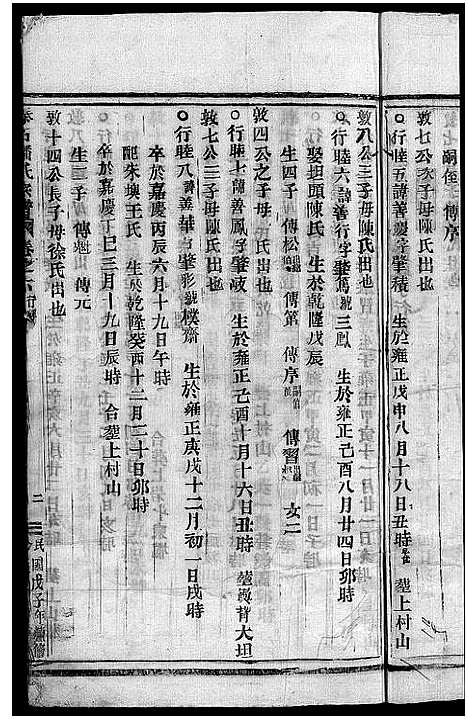 嗣侄 傳序
敦七公次子母陳氏出也
行睦五諱善慶字肇積 生於雍正戊申八月十八日丑時 塟上村山
敦八公三子母陳氏出也
行睦六諱善行字肇萬號三鳳 生於雍正己酉八月廿四日卯時
娶坦頭陳氏 生於乾隆戊辰
生四子 傳松 傳第 傳序 傳習 女二
敦四公之子母 氏出也
行睦七諱善鳳字肇岐 生於雍正己酉十月十六日丑時 塟 背大坦
敦七公三子母陳氏出也
行睦八諱善華字肇彩號樸齋 生於雍正庚戌十二月初一日戌時
卒於嘉慶丙辰六月十九日午時
配朱墺王氏 生於乾隆癸酉十二月二十日卯時
卒於嘉慶丁巳三月十九日辰時 合塟上村山
生二子 傳魁 傳元
敦十四公長子母徐氏出也
氏宗譜 卷之六行傳
二
民國戊子年續修